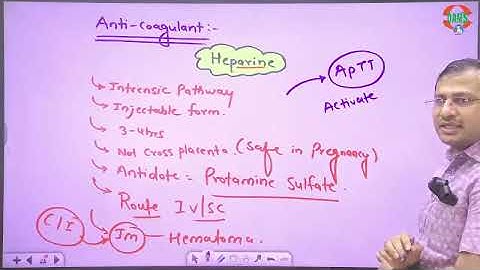 Anti-coagulant:-
DAMS
Heparine
APTT
Activate
Intrensic Pathway
Injectable form.
3-4hrs
Not cross placenta. (Safe in Pregnancy)
Antidote = Protamine Sulfate.
Route IV/SC
C/I Im — Hematoma.